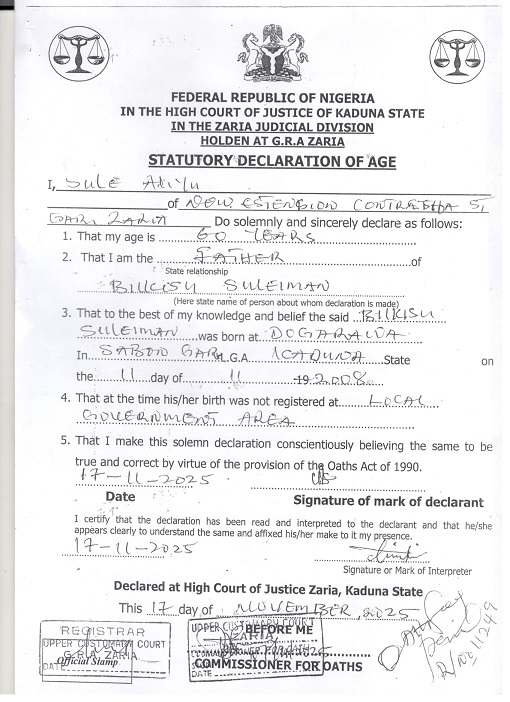 FEDERAL REPUBLIC OF NIGERIA
IN THE HIGH COURT OF JUSTICE OF KADUNA STATE
IN THE ZARIA JUDICIAL DIVISION
HOLDEN AT G.R.A ZARIA
STATUTORY DECLARATION OF AGE
I, SULE ALIYU
of NEW ESTENSION
GARI ZARIA Do solemnly and sincerely declare as follows:
1. That my age is 60 YEARS
2. That I am the FATHER of
State relationship
BILKISU SULEIMAN
(Here state name of person about whom declaration is made)
3. That to the best of my knowledge and belief the said BILKISU
SULEIMAN was born at DOGARAWA
In SABON GARI L.G.A KADUNA State on
the 11 day of 11 19 2008
4. That at the time his/her birth was not registered at LOCAL
GOVERNMENT AREA
5. That I make this solemn declaration conscientiously believing the same to be
true and correct by virtue of the provision of the Oaths Act of 1990.
17-11-2025
Date Signature of mark of declarant
I certify that the declaration has been read and interpreted to the declarant and that he/she
appears clearly to understand the same and affixed his/her make to it my presence.
17-11-2025
Signature or Mark of Interpreter
Declared at High Court of Justice Zaria, Kaduna State
This 17 day of NOVEMBER, 2025
REGISTRAR
UPPER CUSTOMARY COURT
G.R.A, ZARIA
Official Stamp
DATE
UPPER CUSTOMARY COURT
ZARIA,
BEFORE ME
COMMISSIONER FOR OATHS
DATE